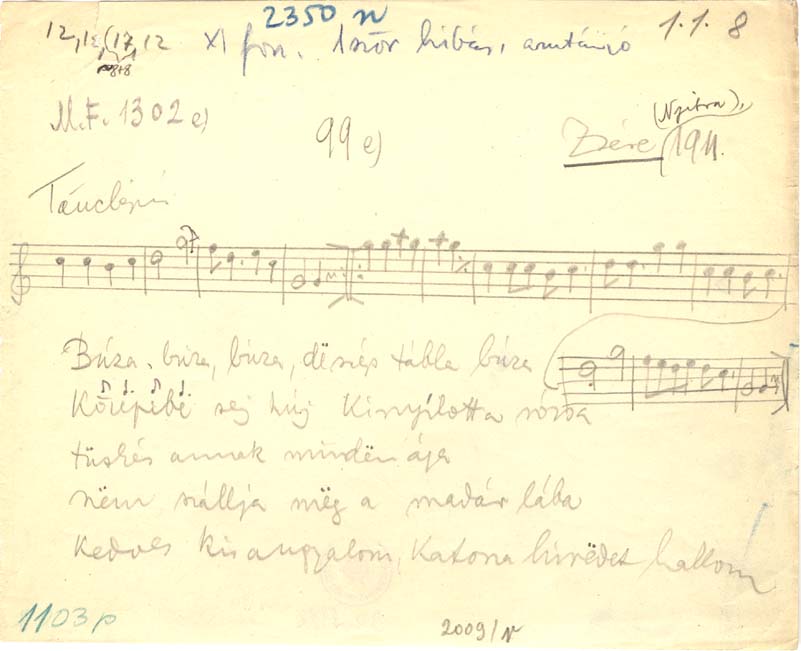 2350
12, 12, (17, 12 XI fon. 1ször hibás, azután jó 1.1. 8
8+8
M.F. 1302 e) 99 e) Zsére (Nyitra), 1911.
Tánclépés
Búza, búza, búza, de szép tábla búza
Közepibe sej haj Kinyílott a rózsa
tüskés annak mindën ága
nëm szállja mëg a madár lába
kedves kis angyalom, Katona hirëdet hallom
1103 p
2009/